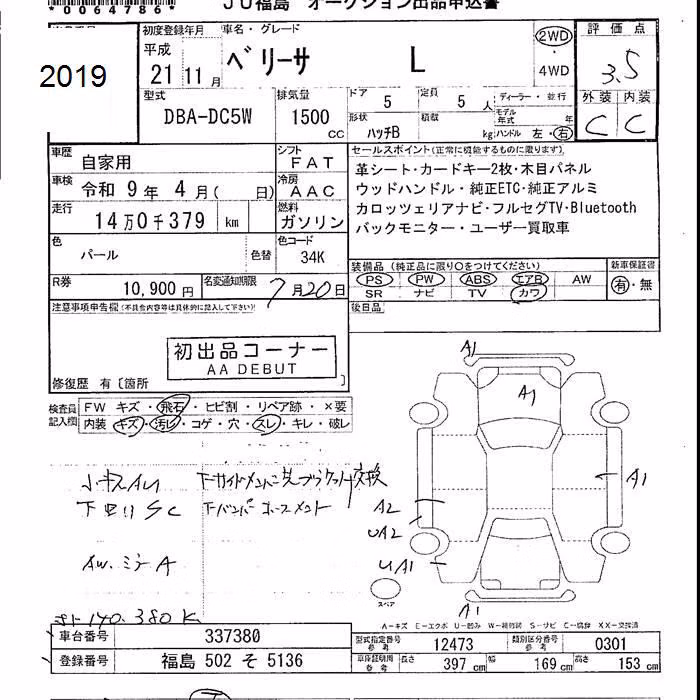 *0064786*
JU福島 オークション出品申込書
2019
初度登録年月 車名・グレード
平成 21 年 11 月
ベリーサ L
2WD・4WD
評価点
3.5
外装 内装
C C
型式 DBA-DC5W
排気量 1500 CC
ドア 5 定員 5 人
ディーラー・並行
形状 ハッチB 積載 kg
モデル年式 年
ハンドル 左・右
車歴 自家用
シフト FAT
車検 令和 9年 4月( 日)
冷房 AAC
走行 14万0千379 km
燃料 ガソリン
色 パール 色替
色コード 34K
R券 10,900円
名変通知期限 7月20日
セールスポイント(正常に機能するものに限ります)
革シート・カードキー2枚・木目パネル
ウッドハンドル・純正ETC・純正アルミ
カロッツェリアナビ・フルセグTV・Bluetooth
バックモニター・ユーザー買取車
装備品(純正品に限り○をつけてください)
PS PW ABS エアB AW
SR ナビ TV カワ
新車保証書
有・無
後日品
注意事項申告欄(不具合内容等は具体的に記入して下さい)
初出品コーナー
AA DEBUT
修復歴 有〔箇所 〕
検査員記入欄
FW キズ・飛石・ヒビ割・リペア跡・×要
内装 キズ・汚レ・コゲ・穴・スレ・キレ・破レ
小キズAU
下回りSC
AW.ミラーA
下サイドメンバー先ブラケット交換
A1
A1
A1
A2
UA2
UA1
A1
スペア
A-キズ E-エクボ U-凹み W-補修跡 S-サビ C-腐蝕 XX-交換済
車台番号 337380
登録番号 福島 502 そ 5136
型式指定番号 参考 12473
類別区分番号 参考 0301
車庫証明用 参考 長さ 397 cm 幅 169 cm 高さ 153 cm